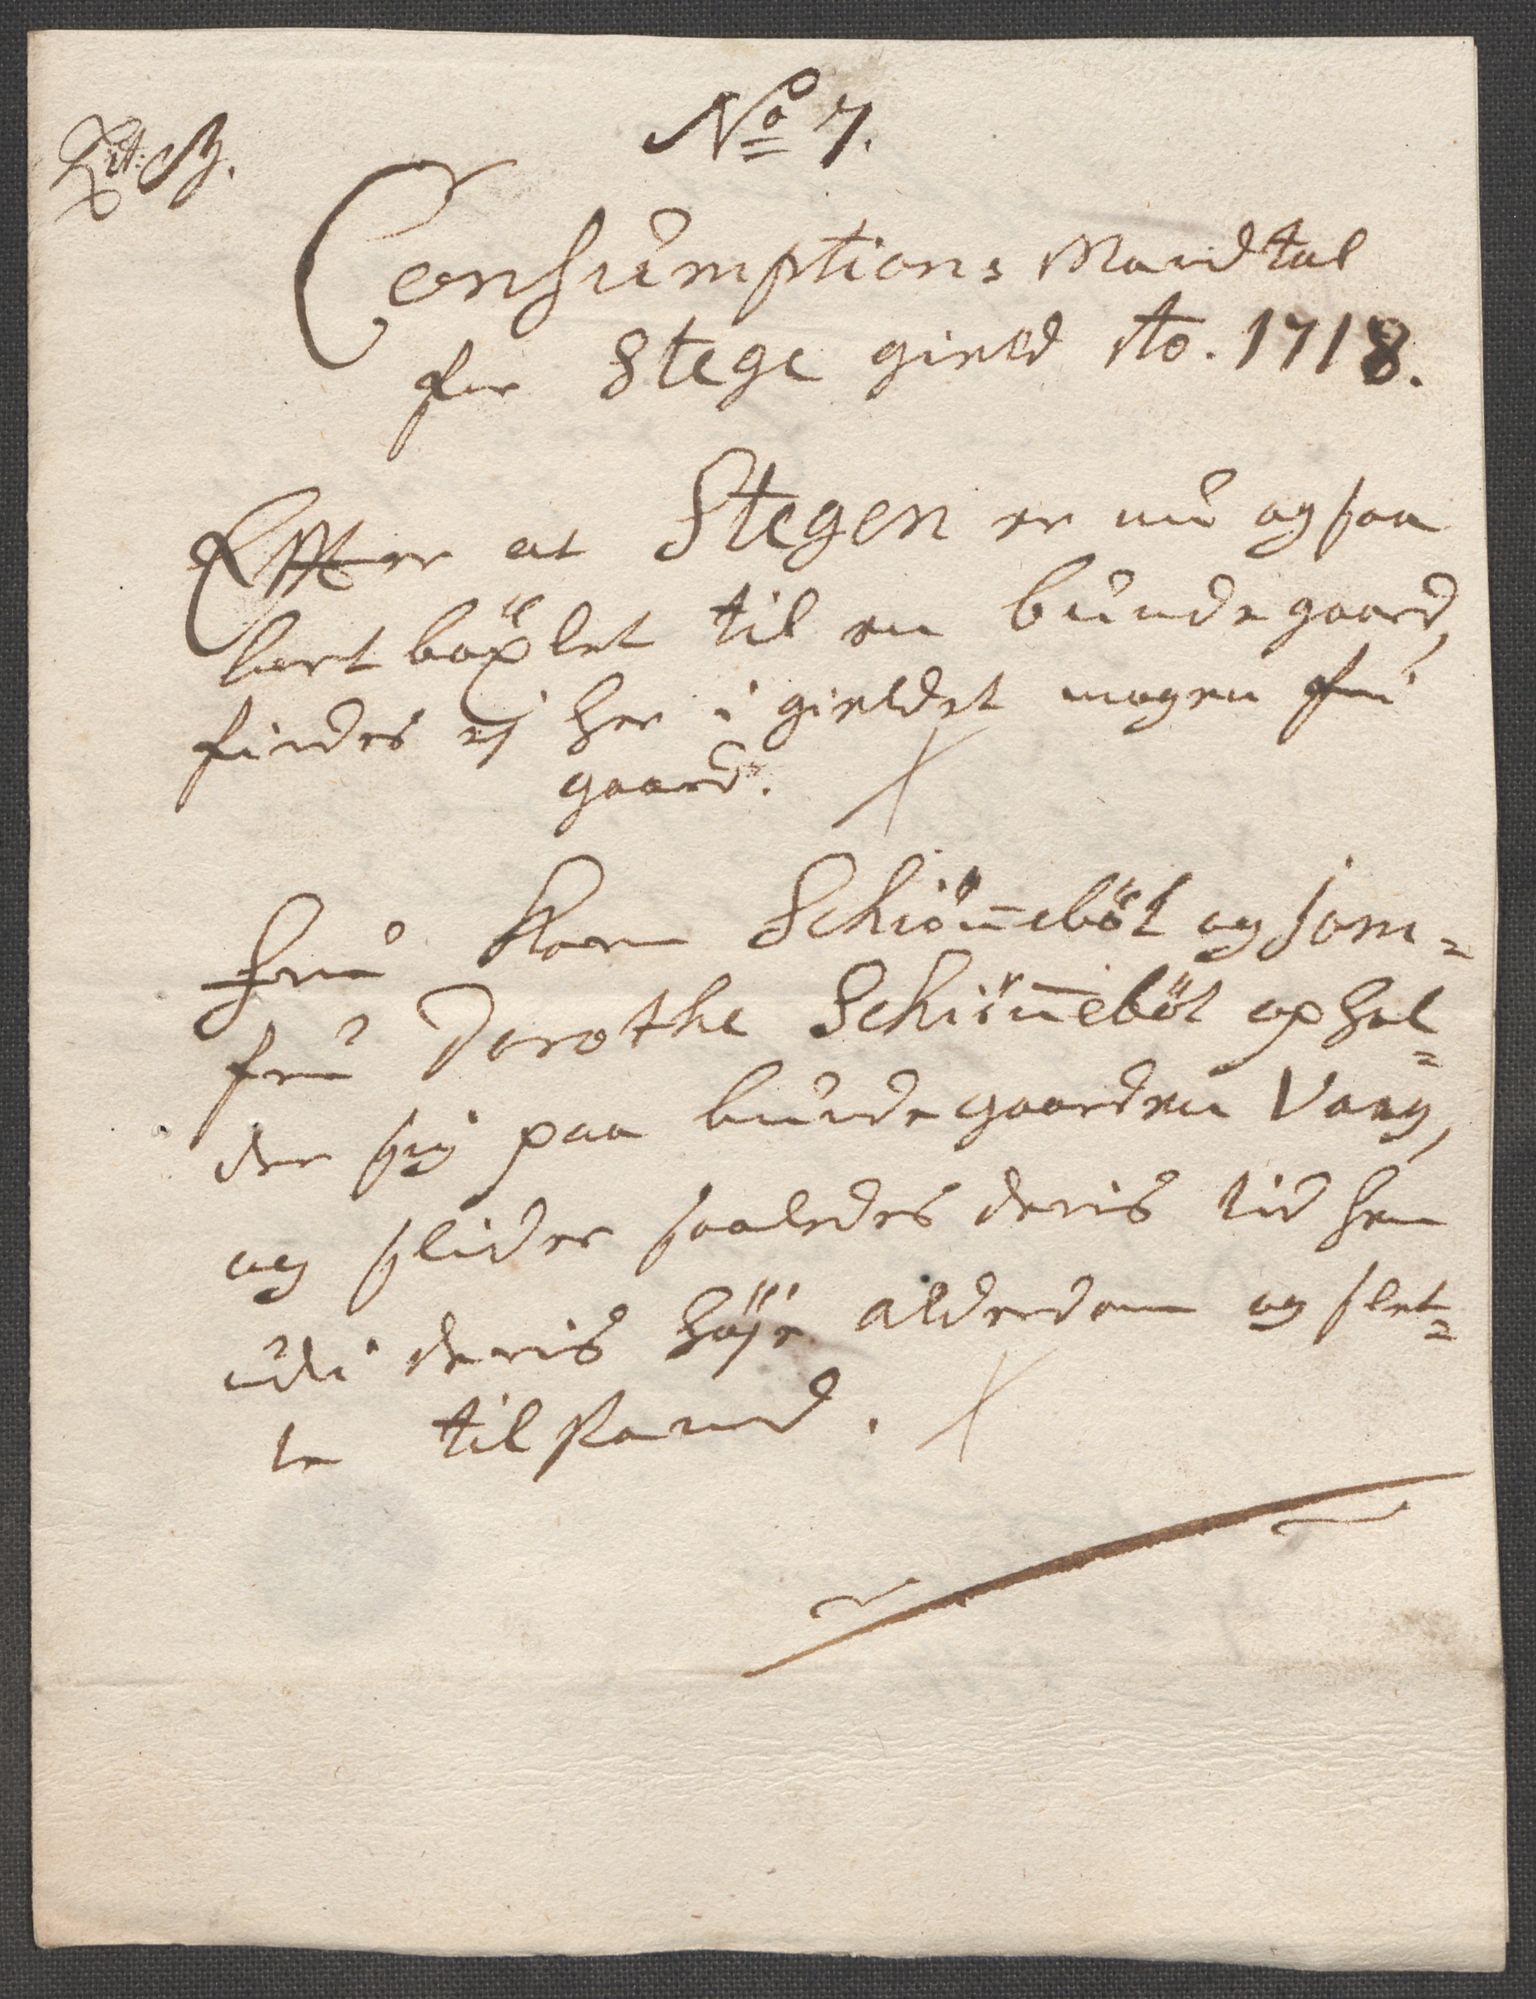 No 7.
Lit: B.
Consumptions Mandtal
for Stege gield Ao. 1718.
Effter at Stegen er nu ogsaa
bort böxlet til en bunde gaard,
findes ej her i gieldet nogen frj
gaard.
Fru Karn Schiönneböl og Jom=
fru Dorothe Schiönneböl ophol=
der sig paa bundegaarden Vaag,
og slider saaledes deris tid hen
udi deris höje alderdom og slet=
te tilstand.